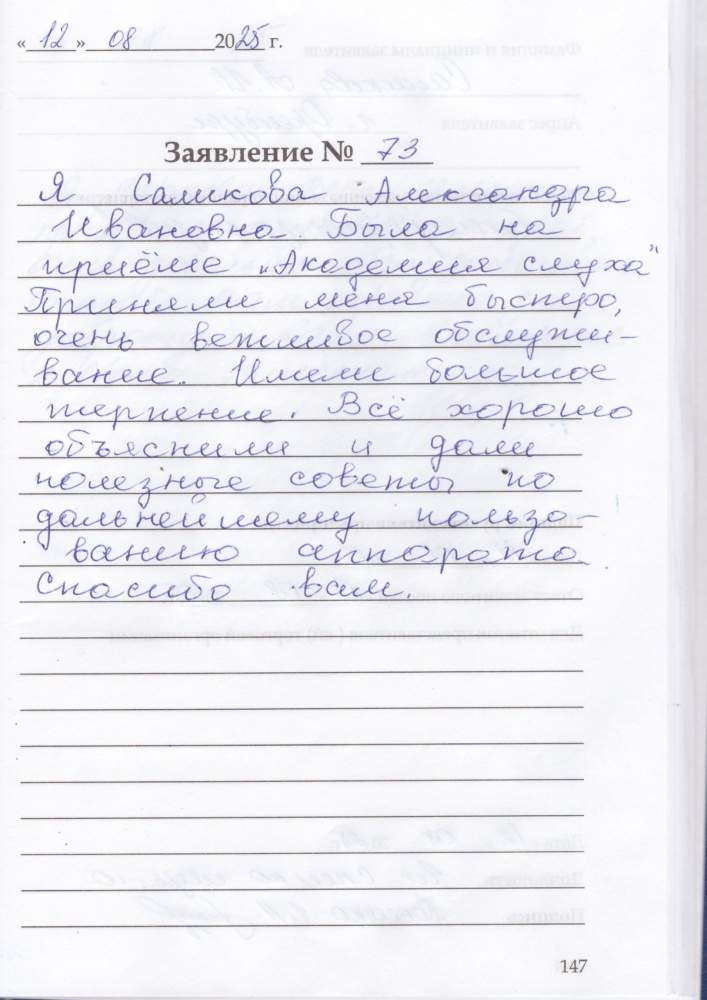 « 12 » 08 2025 г.
Заявление № 73
Я Саликова Александра
Ивановна. Была на
приёме „Академия слуха"
Приняли меня быстро,
очень вежливое обслужи-
вание. Имели большое
терпение. Всё хорошо
объяснили и дали
полезные советы по
дальнейшему пользо-
ванию аппарата.
Спасибо вам.
147